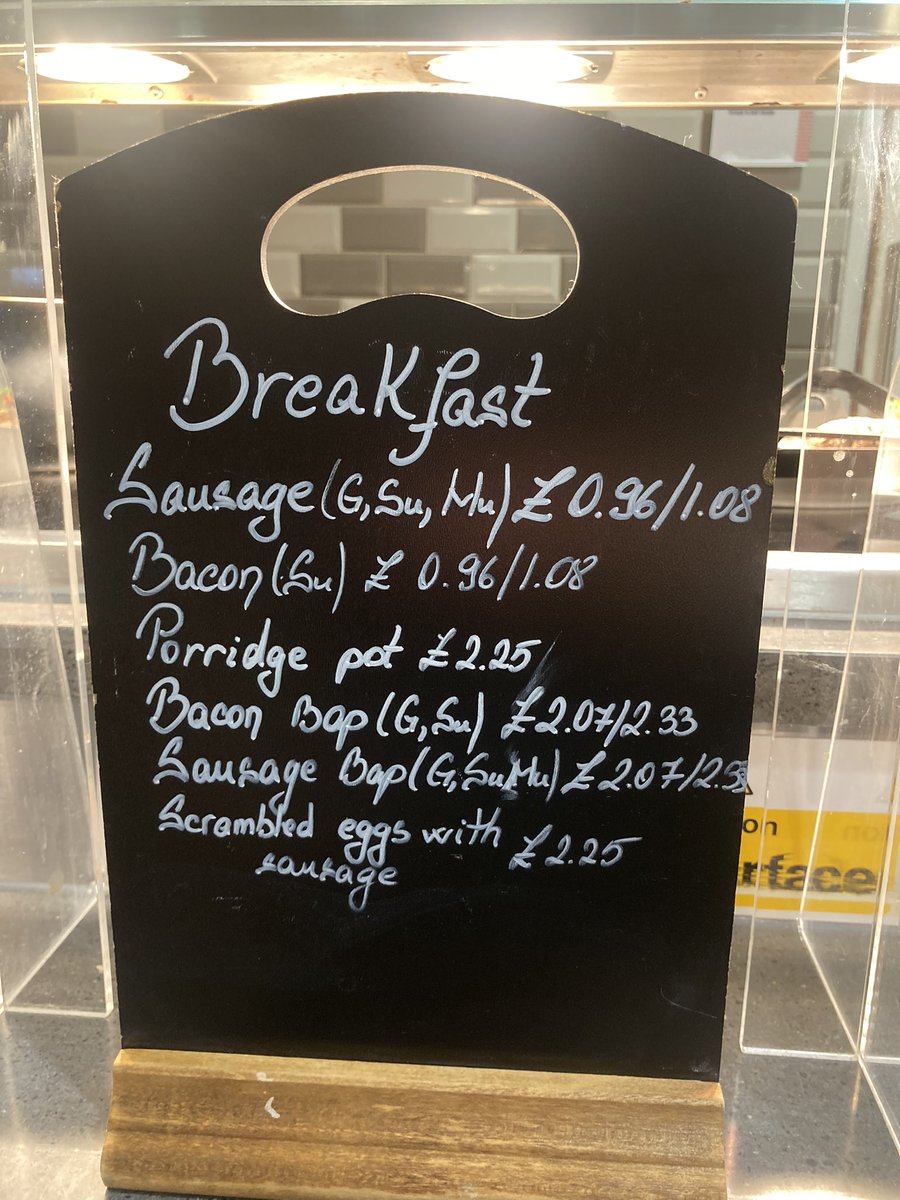 Breakfast
Sausage (G, Su, Mu) £ 0.96/1.08
Bacon (Su) £ 0.96/1.08
Porridge pot £2.25
Bacon Bap (G, Su) £2.07/2.33
Sausage Bap (G, Su, Mu) £2.07/
Scrambled eggs with £2.25
sausage
on
rface